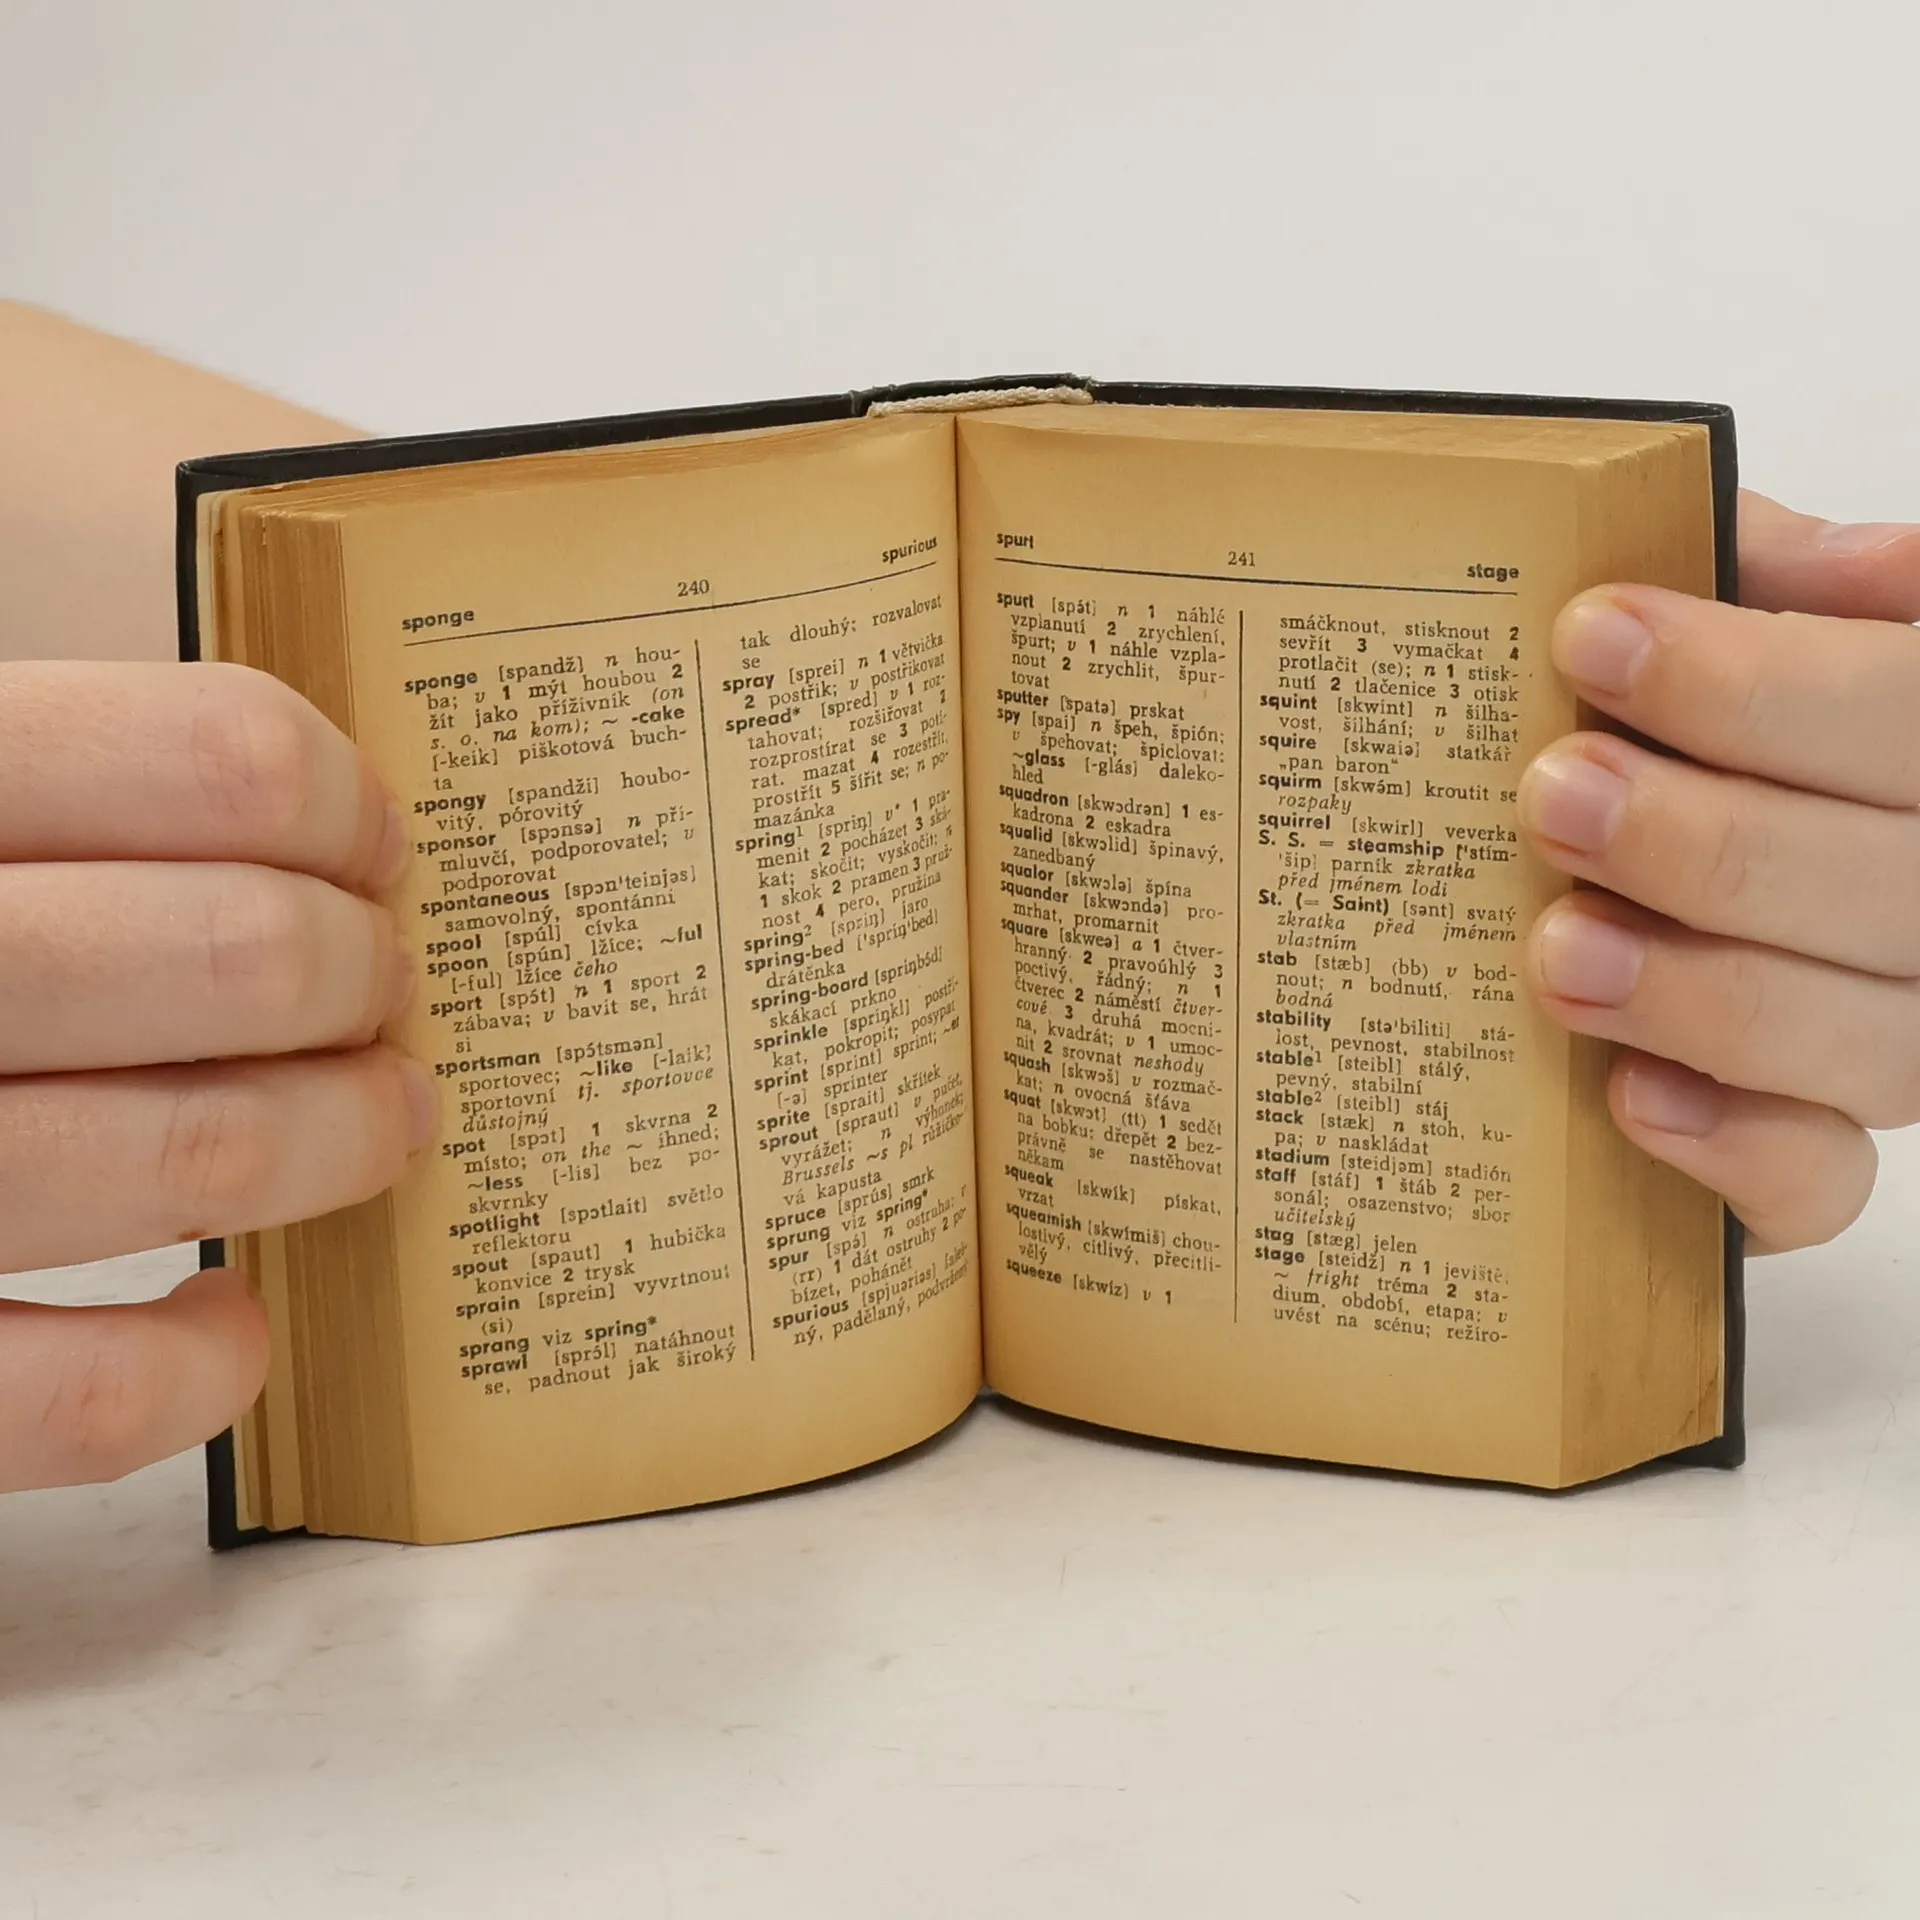 sponge
240
spurious
sponge [spandž] n hou-
ba; v 1 mýt houbou 2
žít jako příživník (on
s. o. na kom); ~ -cake
[-keik] piškotová buch-
ta
spongy [spandži] houbo-
vitý, pórovitý
sponsor [spɔnsə] n pří-
mluvčí, podporovatel; v
podporovat
spontaneous [spɔn'teinjəs]
samovolný, spontánní
spool [spúl] cívka
spoon [spún] lžíce; ~ful
[-ful] lžíce čeho
sport [spɔ́t] n 1 sport 2
zábava; v bavit se, hrát
si
sportsman [spɔ́tsmən]
sportovec; ~like [-laik]
sportovní tj. sportovce
důstojný
spot [spɔt] 1 skvrna 2
místo; on the ~ ihned;
~less [-lis] bez po-
skvrnky
spotlight [spɔtlait] světlo
reflektoru
spout [spaut] 1 hubička
konvice 2 trysk
sprain [sprein] vyvrtnout
(si)
sprang viz spring*
sprawl [sprɔ́l] natáhnout
se, padnout jak široký
tak dlouhý; rozvalovat
se
spray [sprei] n 1 větvička
2 postřik; v postřikovat
spread* [spred] v 1 roz-
tahovat; rozšiřovat 2
rozprostírat se 3 potí-
rat, mazat 4 rozestřít,
prostřít 5 šířit se; n po-
mazánka
spring¹ [spriŋ] v* 1 pra-
menit 2 pocházet 3 ská-
kat; skočit; vyskočit; n
1 skok 2 pramen 3 pruž-
nost 4 pero, pružina
spring² [spriŋ] jaro
spring-bed ['spriŋ'bed]
drátěnka
spring-board [spriŋbɔ́d]
skákací prkno
sprinkle [spriŋkl] postří-
kat, pokropit; posypat
sprint [sprint] sprint; ~er
[-ə] sprinter
sprite [sprait] skřítek
sprout [spraut] v pučet,
vyrážet; n výhonek;
Brussels ~s pl růžičko-
vá kapusta
spruce [sprús] smrk
sprung viz spring*
spur [spə́] n ostruha; v
(rr) 1 dát ostruhy 2 po-
bízet, pohánět
spurious [spjuəriəs]
ný, padělaný, podvržený
spurt
241
stage
spurt [spə́t] n 1 náhlé
vzplanutí 2 zrychlení,
špurt; v 1 náhle vzpla-
nout 2 zrychlit, špur-
tovat
sputter [spatə] prskat
spy [spai] n špeh, špión;
v špehovat; špiclovat;
~glass [-glás] daleko-
hled
squadron [skwɔdrən] 1 es-
kadrona 2 eskadra
squalid [skwɔlid] špinavý,
zanedbaný
squalor [skwɔlə] špína
squander [skwɔndə] pro-
mrhat, promarnit
square [skweə] a 1 čtver-
hranný 2 pravoúhlý 3
poctivý, řádný; n 1
čtverec 2 náměstí čtver-
cové 3 druhá mocni-
na, kvadrát; v 1 umoc-
nit 2 srovnat neshody
squash [skwɔš] v rozmač-
kat; n ovocná šťáva
squat [skwɔt] (tt) 1 sedět
na bobku; dřepět 2 bez-
právně se nastěhovat
někam
squeak [skwík] pískat,
vrzat
squeamish [skwímiš] chou-
lostivý, citlivý, přecitli-
vělý
squeeze [skwíz] v 1
smáčknout, stisknout 2
sevřít 3 vymačkat 4
protlačit (se); n 1 stisk-
nutí 2 tlačenice 3 otisk
squint [skwint] n šilha-
vost, šilhání; v šilhat
squire [skwaiə] statkář
„pan baron“
squirm [skwə́m] kroutit se
rozpaky
squirrel [skwirl] veverka
S. S. = steamship ['stím-
'šip] parník zkratka
před jménem lodi
St. (= Saint) [sənt] svatý
zkratka před jménem
vlastním
stab [stæb] (bb) v bod-
nout; n bodnutí, rána
bodná
stability [stə'biliti] stá-
lost, pevnost, stabilnost
stable¹ [steibl] stálý,
pevný, stabilní
stable² [steibl] stáj
stack [stæk] n stoh, ku-
pa; v naskládat
stadium [steidjəm] stadión
staff [stáf] 1 štáb 2 per-
sonál; osazenstvo; sbor
učitelský
stag [stæg] jelen
stage [steidž] n 1 jeviště,
~ fright tréma 2 sta-
dium, období, etapa; v
uvést na scénu; režíro-